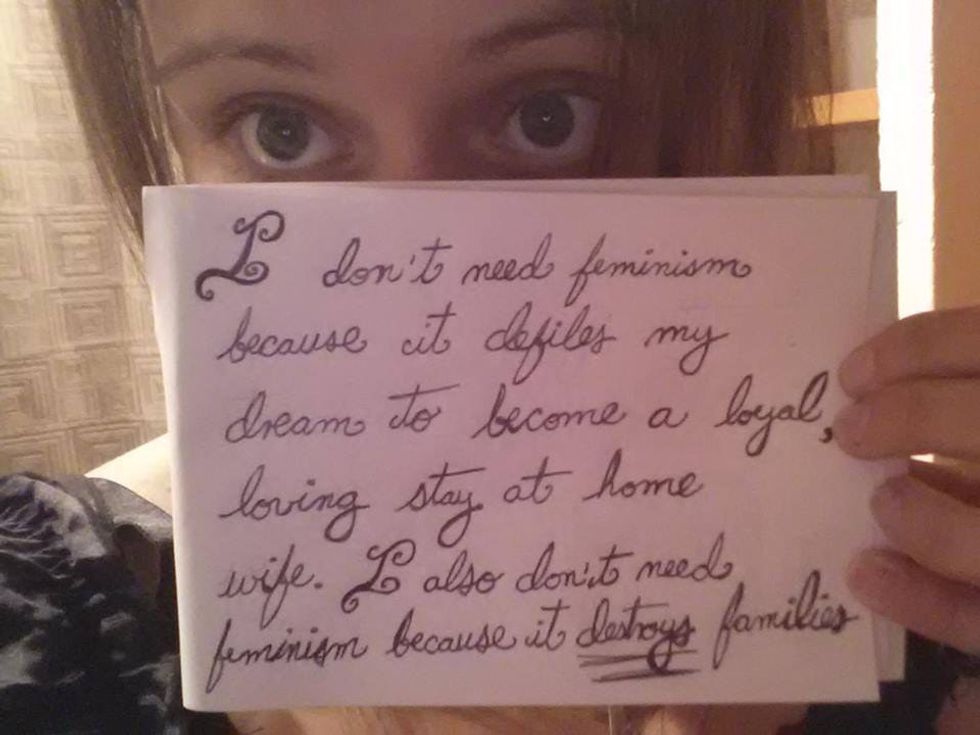 I don't need feminism
because it defiles my
dream to become a loyal,
loving stay at home
wife. I also don't need
feminism because it destroys families